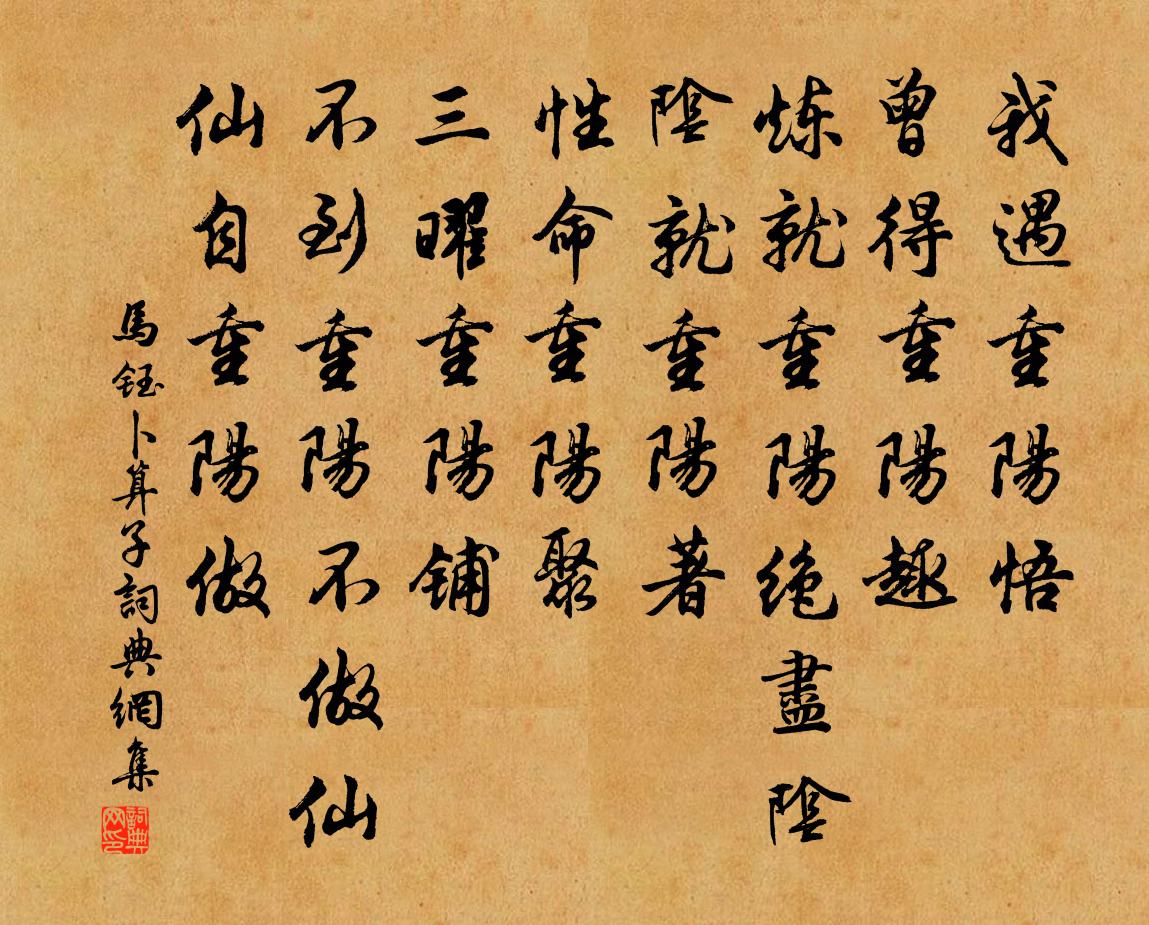 我遇重陽悟
曾得重陽趣
炼就重陽绝盡陰
陰就重陽著
性命重陽聚
三曜重陽鋪
不到重陽不做仙
仙自重陽做
馬鈺卜算子詞典網集
詞典网印